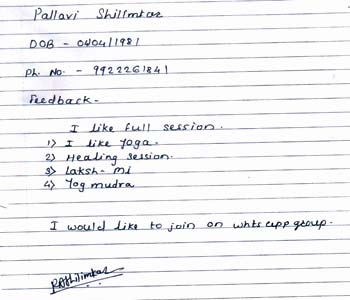 Pallavi Shilimkar
DOB - 04/04/1981
Ph. No. - 9922261841
Feedback -
I like full session.
1) I like Yoga.
2) Healing session.
3) Laksh-mi
4) Yog mudra
I would like to join on whts app group.
PShilimkar